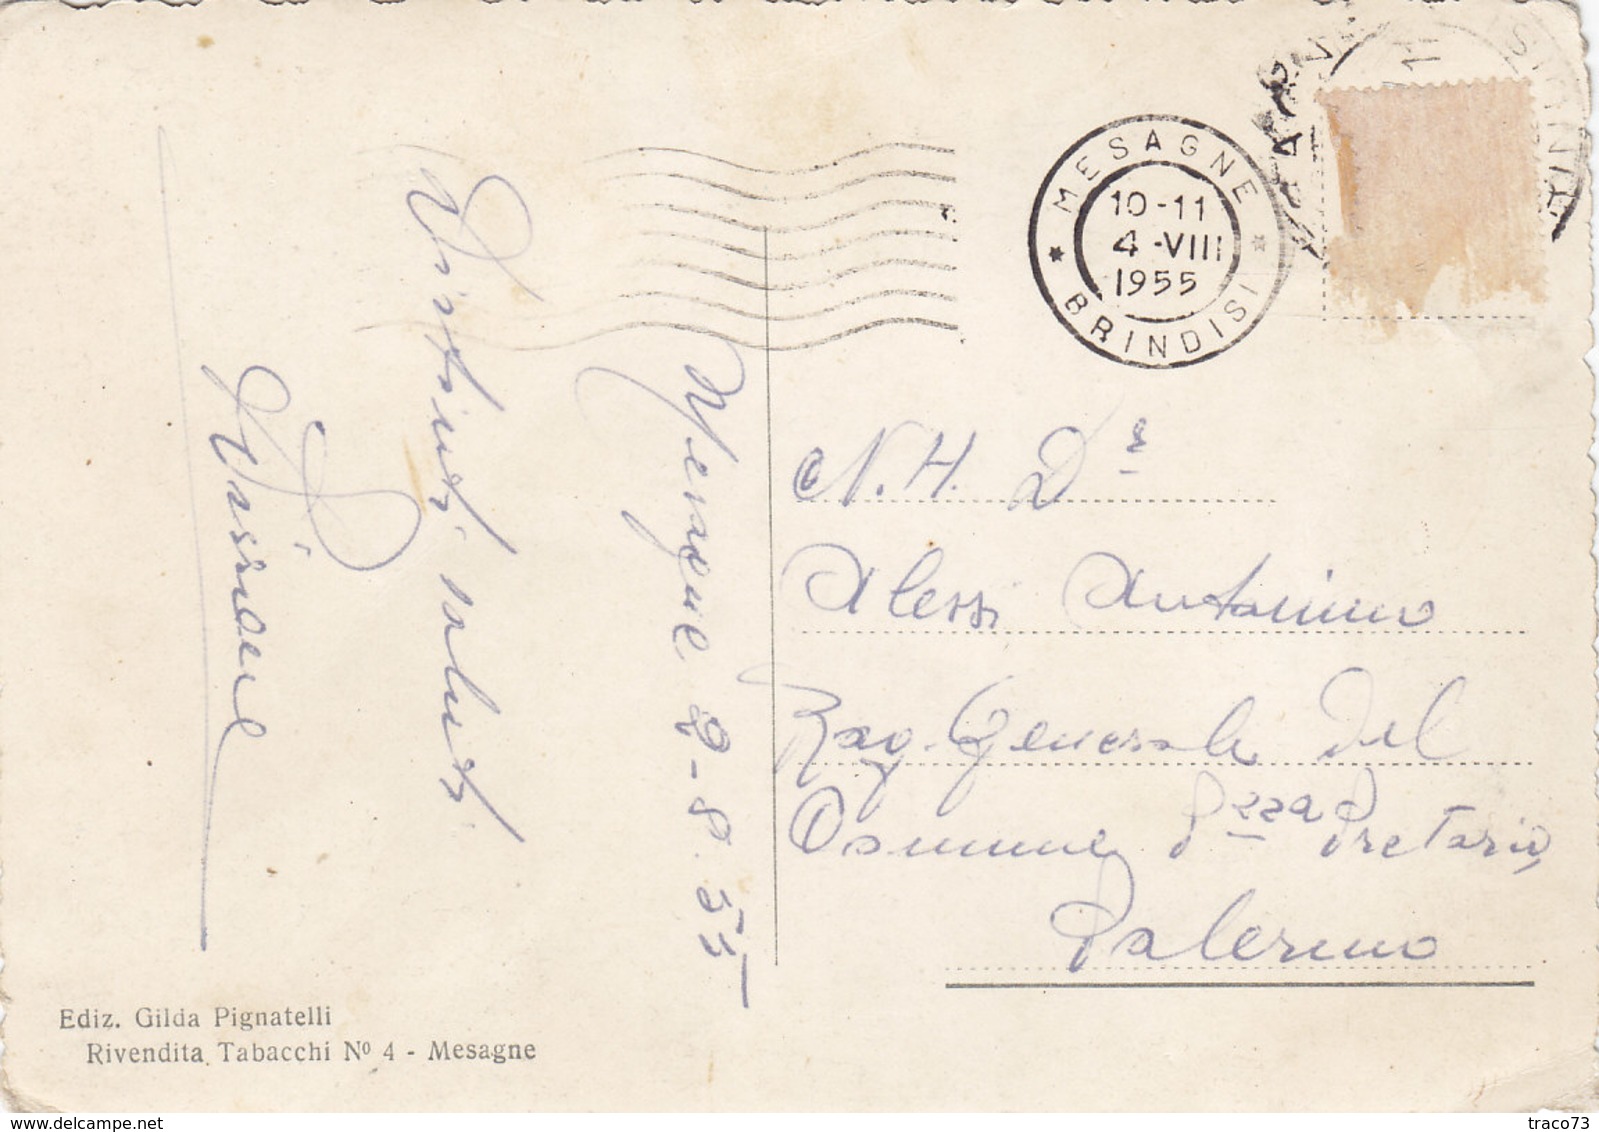 MESAGNE
10-11
4-VIII
1955
* BRINDISI *
Mesagne 2-8-55
Distinti saluti
N.H. Dr
Alessi Antonino
Rag. Generale del
Comune Pzza Pretorio,
Palermo
Ediz. Gilda Pignatelli
Rivendita Tabacchi Nº 4 - Mesagne
traco73